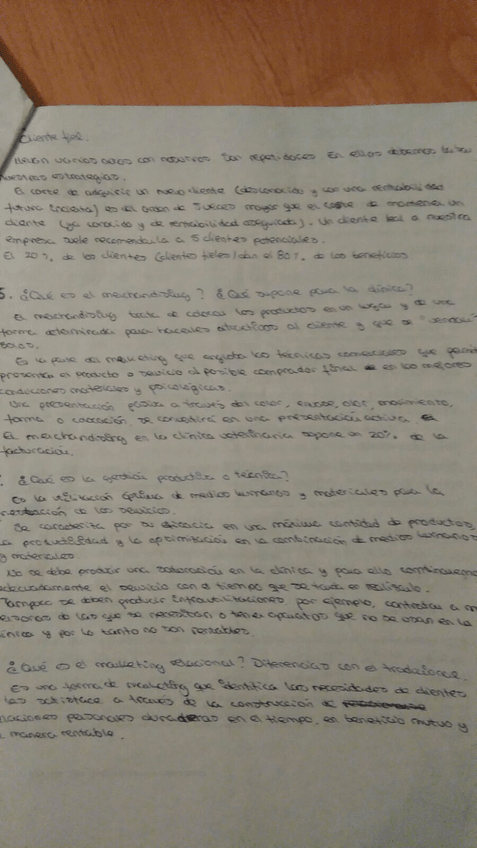 Cliente fiel.
llevan varios años con nosotros. Son repetidores. En ellos debemos basar
nuestras estrategias.
El coste de adquirir un nuevo cliente (desconocido y con una rentabilidad
futura incierta) es del orden de 5 veces mayor que el coste de mantener un
cliente (ya conocido y de rentabilidad asegurada). Un cliente leal a nuestra
empresa suele recomendarla a 5 clientes potenciales.
El 20% de los clientes (clientes fieles) dan el 80% de los beneficios.
5. ¿Qué es el merchandising? ¿Qué supone para la clínica?
El merchandising trata de colocar los productos en un lugar y de una
forma determinada para hacerlos atractivos al cliente y que se "vendan"
solos.
Es la parte del marketing que engloba las técnicas comerciales que permiten
presentar el producto o servicio al posible comprador final en las mejores
condiciones materiales y psicológicas.
Una presentación pasiva a través del color, envase, olor, movimiento,
forma o colocación se convertirá en una presentación activa.
El merchandising en la clínica veterinaria supone un 20% de la
facturación.
¿Qué es la gestión productiva o técnica?
Es la utilización óptima de medios humanos y materiales para la
prestación de los servicios.
Se caracteriza por su eficacia en una máxima cantidad de productos,
la productividad y la optimización en la combinación de medios humanos
y materiales.
No se debe producir una saturación en la clínica y para ello
adecuadamente el servicio con el tiempo que se tarda en realizarlo.
Tampoco se deben producir infrautilizaciones por ejemplo, contratar a más
personas de las que se necesitan o tener aparatos que no se usan en la
clínica y por lo tanto no son rentables.
¿Qué es el marketing relacional? Diferencias con el tradicional.
Es una forma de marketing que identifica las necesidades de clientes
las satisface a través de la construcción de
relaciones personales duraderas en el tiempo, en beneficio mutuo y
manera rentable.